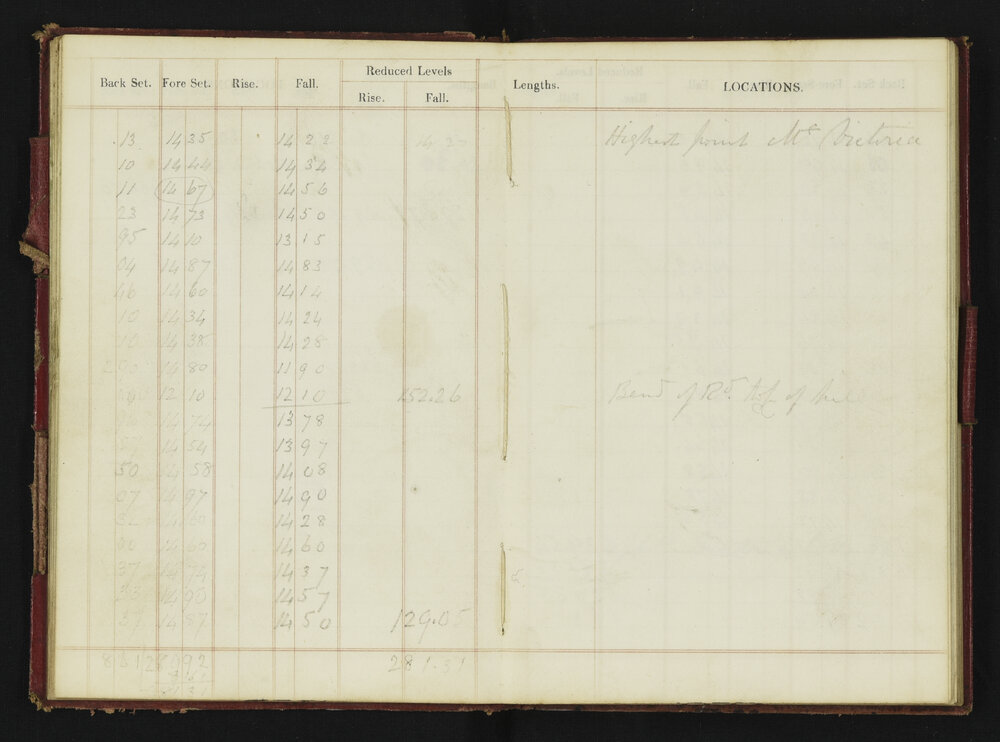 Back Set. Fore Set. Rise. Fall. Reduced Levels Lengths. LOCATIONS.
Rise. Fall.
.13 14 35 14 22 Highest point Mt Victoria
10 14 44 14 34
11 14 67 14 56
23 14 73 14 50
95 14 10 13 15
04 14 87 14 83
46 14 60 14 14
10 14 34 14 24
10 14 38 14 28
290 14 80 11 90
12 10 12 10 152.26 Bend of Rd top of
14 74 13 78
14 54 13 97
50 14 58 14 08
07 14 97 14 90
32 14 60 14 28
00 14 60 14 60
37 14 74 14 37
33 14 90 14 57
37 14 87 14 50 129.05
281.31